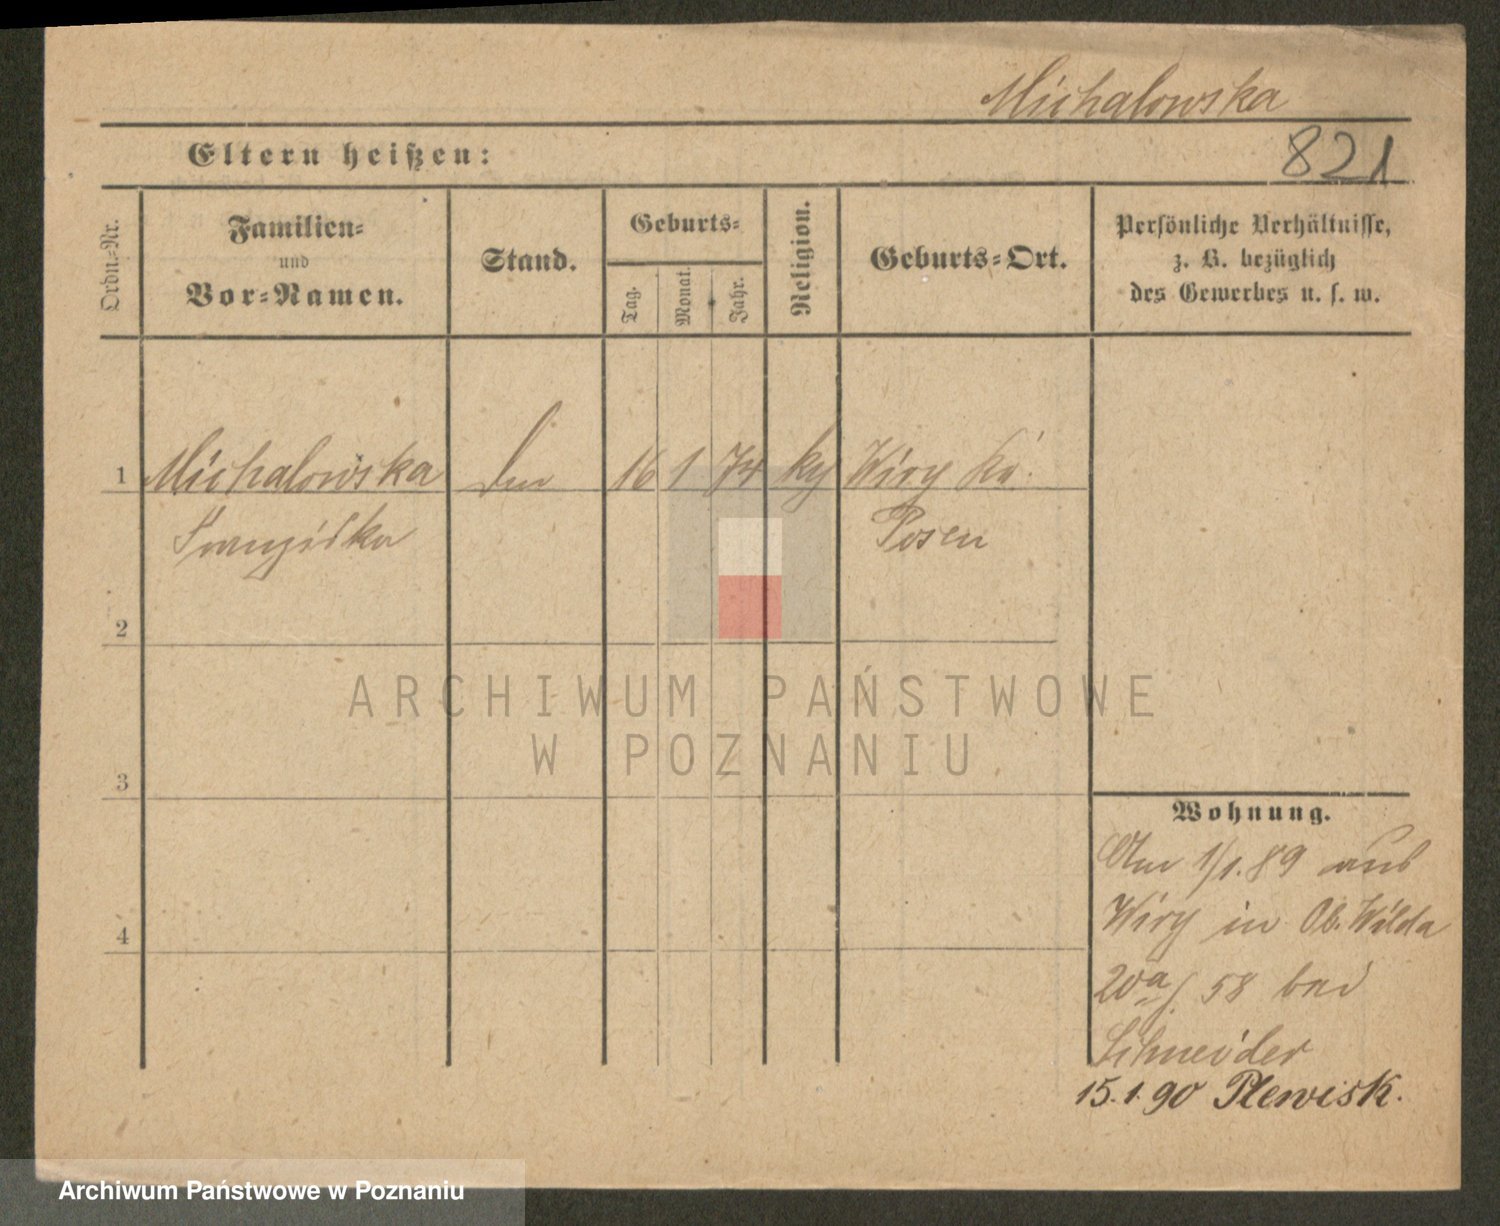 Michalowska
Eltern heißen:
821
Ordn.-Nr.
Familien-
und
Vor-Namen.
Stand.
Geburts-
Tag.
Monat.
Jahr.
Religion.
Geburts-Ort.
Persönliche Verhältnisse,
z. B. bezüglich
des Gewerbes u. s. w.
1 Michalowska 16 1 74 Wiry Kr.
Franziska Posen
2
3
4
Wohnung.
Am 1/1.89 aus
Wiry in Ob. Wilda
20a/58 bei
Schneider
15.1.90 Plewisk.
ARCHIWUM PAŃSTWOWE
W POZNANIU
Archiwum Państwowe w Poznaniu